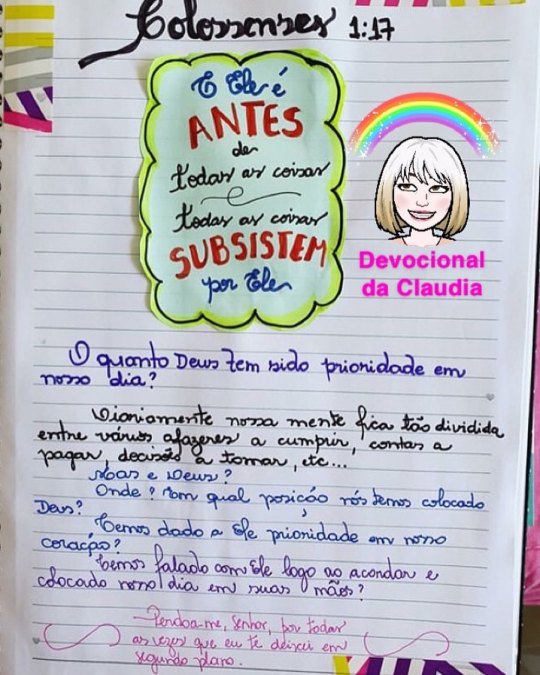 Colossenses 1:17
E Ele é
ANTES
de
todas as coisas
e
todas as coisas
SUBSISTEM
por Ele
Devocional
da Claudia
O quanto Deus tem sido prioridade em
nosso dia?
Diariamente nossa mente fica tão dividida
entre vários afazeres a cumprir, contas a
pagar, decisão a tomar, etc...
Mas e Deus?
Onde? Em qual posição nós temos colocado
Deus?
Temos dado a Ele prioridade em nosso
coração?
Temos falado com Ele logo ao acordar e
colocado nosso dia em suas mãos?
Perdoa-me, Senhor, por todas
as vezes que eu te deixei em
segundo plano.